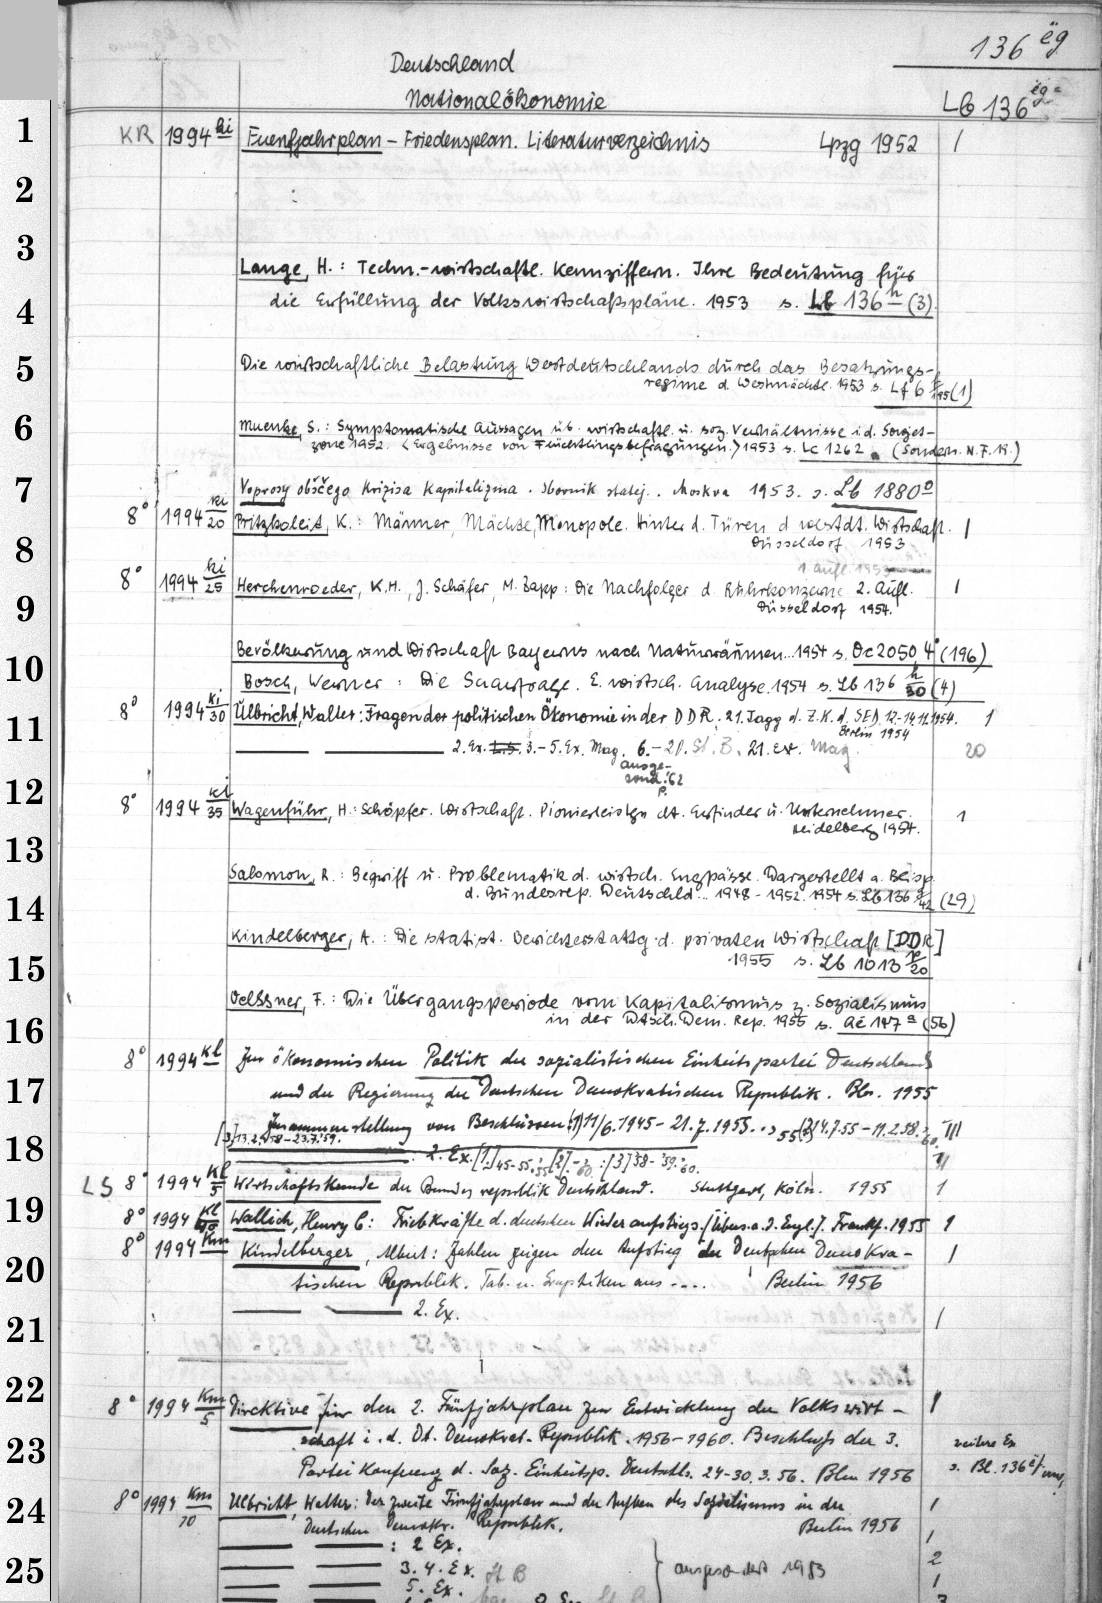 136 ëg
Deutschland
Nationalökonomie
Lb 136 ëg
1 KR 1994 ki Fuenfjahrplan – Friedensplan. Literaturverzeichnis Lpzg 1952 1
2
3
Lange, H.: Techn.-wirtschaftl. Kennziffern. Ihre Bedeutung für
4 die Erfüllung der Volkswirtschaftspläne. 1953 s. Lb 136 h (3)
5 Die wirtschaftliche Belastung Westdeutschlands durch das Besatzungs-
regime d. Westmächte. 1953 s. Lf 6 /195 (1)
6 Muenke, S.: Symptomatische Aussagen üb. wirtschaftl. u. soz. Verhältnisse i.d. Sowjet-
zone 1952. <Ergebnisse von Flüchtlingsbefragungen.> 1953 s. Lc 1262 (Sondern. N.F. 12.)
7 Voprosy obščego krizisa Kapitalizma. Sbornik statej. Moskva 1953. s. Lb 1880 o
8° 1994 ki/20 Pritzkoleit, K.: Männer, Mächte, Monopole. Hinter d. Türen d westdt. Wirtschaft. 1
8 Düsseldorf 1953
1. Aufl. 1953
8° 1994 ki/25 Herchenroeder, K.H., J. Schäfer, M. Zapp: Die Nachfolger d. Ruhrkonzerne 2. Aufl. 1
9 Düsseldorf 1954.
Bevölkerung und Wirtschaft Bayerns nach Naturräumen.. 1954 s. Oc 2050 4° (196)
10 Bosch, Werner: Die Saarfrage. E. wirtsch. Analyse. 1954 s. Lb 136 h/30 (4)
8° 1994 ki/30 Ulbricht, Walter: Fragen der politischen Ökonomie in der DDR. 21. Tagg d. Z.K. d. SED 12.-14.11.1954. 1
11 Berlin 1954
2. Ex. 3.–5. Ex. Mag. 6.–20. St. B. 21. Ex. Mag. 20
ausge-
sond. '62
12 8° 1994 ki/35 Wagenführ, H.: Schöpfer. Wirtschaft. Pionierleistgn dt. Erfinder u. Unternehmer. 1
Heidelberg 1954.
13
Salomon, R.: Begriff u. Problematik d. wirtsch. Engpässe. Dargestellt a. Beisp.
14 d. Bundesrep. Deutschld... 1948–1952. 1954 s. Lb 136 /42 (29)
Kindelberger, A.: Die statist. Berichterstattg d. privaten Wirtschaft [DDR]
15 1955 s. Lb 1013 /20
Oelssner, F.: Die Übergangsperiode vom Kapitalismus z. Sozialismus
16 in der Dtsch. Dem. Rep. 1955 s. Ae 147 a (56)
8° 1994 kl Zur ökonomischen Politik der sozialistischen Einheitspartei Deutschlands
17 und der Regierung der Deutschen Demokratischen Republik. Bln. 1955
Zusammenstellung von Beschlüssen (1) 11/6.1945 – 21.7.1955. 55 (2) 4.7.55 – 11.2.58. 60 III
18 [3] 13.2.58–23.7.59. : 2. Ex. [1] 45-55. 55 [2] 60 : [3] 58-59. 60.
LS 8° 1994 kl/5 Wirtschaftskunde der Bundesrepublik Deutschland. Stuttgart, Köln. 1955 1
19 8° 1994 kl/10 Wallich, Henry C: Triebkräfte d. deutschen Wiederaufstiegs. [Übers. a. d. Engl.]. Frankf. 1955 1
8° 1994 km Kindelberger, Albert: Zahlen zeigen den Aufstieg der Deutschen Demokra- 1
20 tischen Republik. Tab. u. Graphiken aus .... Berlin 1956
21 2. Ex. 1
22 8° 1994 km/5 Direktive für den 2. Fünfjahrplan zur Entwicklung der Volkswirt- 1
23 schaft i. d. Dt. Demokrat. Republik. 1956–1960. Beschluß der 3. weitere Ex
Partei Konferenz d. Soz. Einheitsp. Deutschls. 24-30.3.56. Bln 1956 s. Bl. 136 ëf
24 8° 1994 km/10 Ulbricht, Walter: Der zweite Fünfjahrplan und der Aufbau des Sozialismus in der 1
Deutschen Demokr. Republik. Berlin 1956
: 2 Ex. 1
25 3. 4. Ex. St B ausgesondert 1983 2
5. Ex. 1